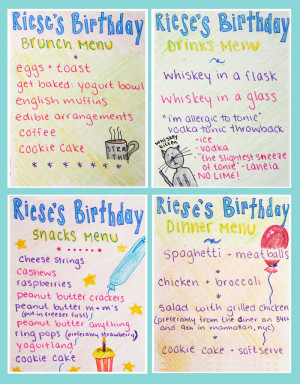 Riese's Birthday
Brunch Menu
eggs + toast
get baked: yogurt bowl
english muffins
edible arrangements
coffee
cookie cake
STRA
THE
Riese's Birthday
Drinks Menu
whiskey in a flask
whiskey in a glass
"i'm allergic to tonic"
vodka tonic throwback
-ice
-vodka
-"the slightest sneeze
of tonic" -Laneia
NO LIME!
whiskey
kitten
Riese's Birthday
Snacks Menu
cheese strings
cashews
raspberries
peanut butter crackers
peanut butter m+m's
(put in freezer first)
peanut butter anything
ring pops (preferably strawberry)
yogurtland
cookie cake
Riese's Birthday
Dinner Menu
spaghetti + meatballs
chicken + broccoli
salad with grilled chicken
(preferably from the diner on 34th
and 9th in manhattan, nyc)
cookie cake + softserve